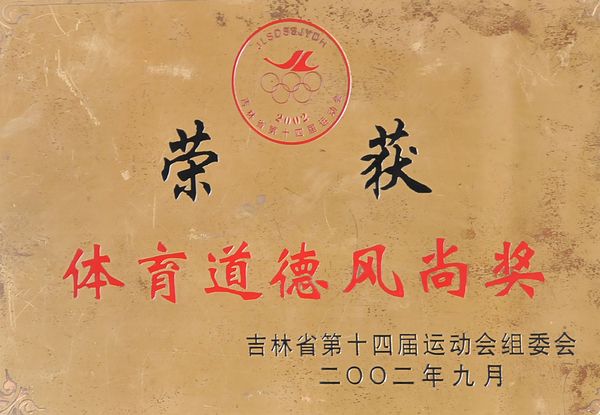 JLSDSSJYDH
2002
吉林省第十四届运动会
荣获
体育道德风尚奖
吉林省第十四届运动会组委会
二〇〇二年九月